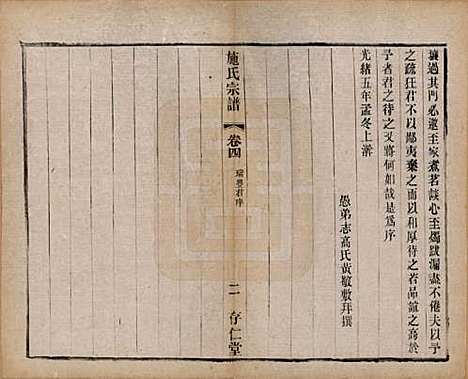 壤過其門必邀至家煮茗談心至燭跋漏盡不倦夫以予
之疏狂君不以鄙夷棄之而以和厚待之若品誼之高於
予者君之待之又將何如哉是爲序
光緒五年孟冬上澣
愚弟志高氏黃敬敷拜撰
施氏宗譜
卷四
瑞豊君序
二
存仁堂